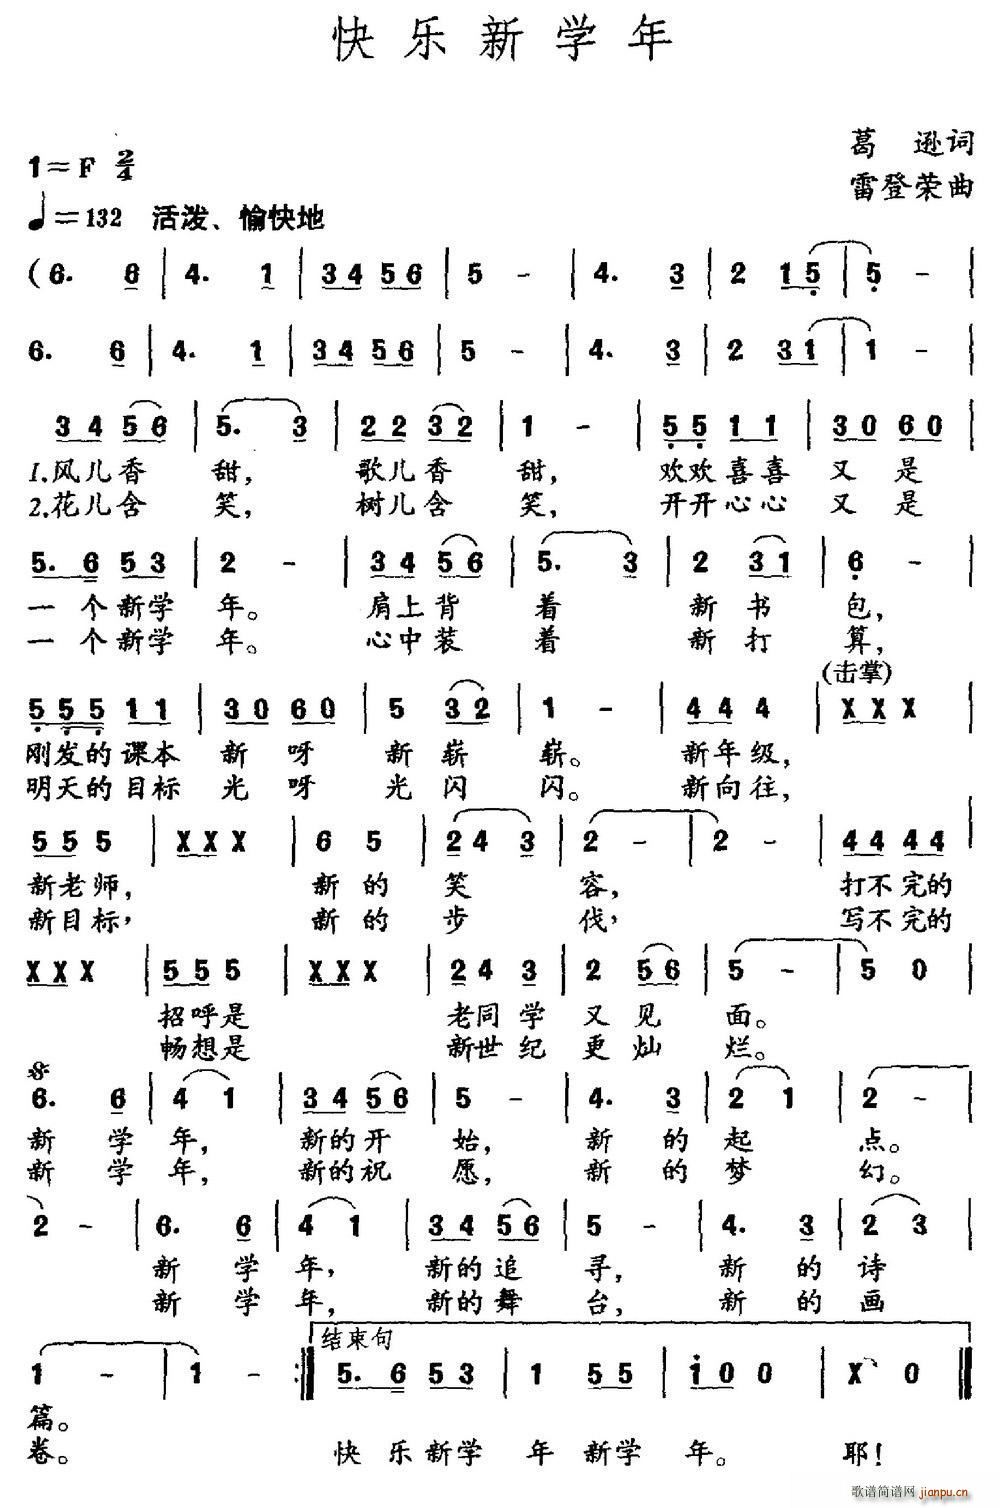 快乐新学年
葛逊词
1=F 2/4
雷登荣曲
♩=132 活泼、愉快地
(6. 6 | 4. 1 | 3 4 5 6 | 5 - | 4. 3 | 2 1 5 | 5 - |
6. 6 | 4. 1 | 3 4 5 6 | 5 - | 4. 3 | 2 3 1 | 1 - |
3 4 5 6 | 5. 3 | 2 2 3 2 | 1 - | 5 5 1 1 | 3 0 6 0 |
1.风儿香 甜, 歌儿香 甜, 欢欢喜喜 又 是
2.花儿含 笑, 树儿含 笑, 开开心心 又 是
5. 6 5 3 | 2 - | 3 4 5 6 | 5. 3 | 2 3 1 | 6 - |
一 个 新学 年。 肩上背 着 新 书 包,
一 个 新学 年。 心中装 着 新 打 算,
(击掌)
5 5 5 1 1 | 3 0 6 0 | 5 3 2 | 1 - | 4 4 4 | X X X |
刚发的课本 新 呀 新 崭 崭。 新年级,
明天的目标 光 呀 光 闪 闪。 新向往,
5 5 5 | X X X | 6 5 | 2 4 3 | 2 - | 2 - | 4 4 4 4 |
新老师, 新 的 笑 容, 打不完的
新目标, 新 的 步 伐, 写不完的
X X X | 5 5 5 | X X X | 2 4 3 | 2 5 6 | 5 - | 5 0 |
招呼是 老同学 又 见 面。
畅想是 新世纪 更 灿 烂。
𝄋
6. 6 | 4 1 | 3 4 5 6 | 5 - | 4. 3 | 2 1 | 2 - |
新 学 年, 新的开 始, 新 的 起 点。
新 学 年, 新的祝 愿, 新 的 梦 幻。
2 - | 6. 6 | 4 1 | 3 4 5 6 | 5 - | 4. 3 | 2 3 |
新 学 年, 新的追 寻, 新 的 诗
新 学 年, 新的舞 台, 新 的 画
结束句
1 - | 1 - :‖ 5. 6 5 3 | 1 5 5 | 1 0 0 | X 0 ‖
篇。
卷。 快 乐 新学 年 新学 年。 耶!
歌谱简谱网
jianpu.cn